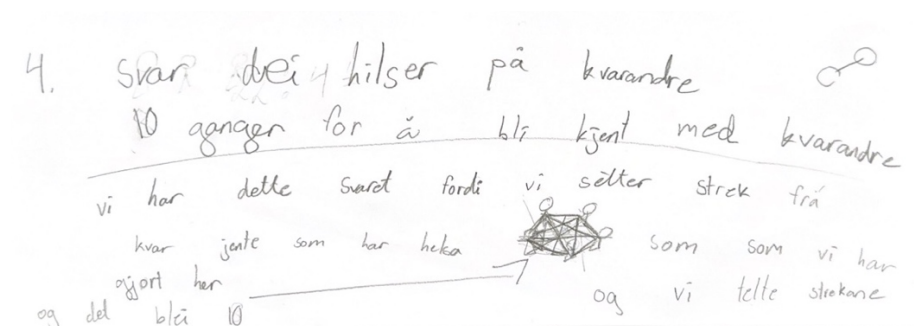 4. svar dei hilser på kvarandre
10 ganger for å bli kjent med kvarandre
vi har dette svaret fordi vi setter strek frå
kvar jente som har helsa som som vi har
gjort her og vi telte strekane
og det blei 10